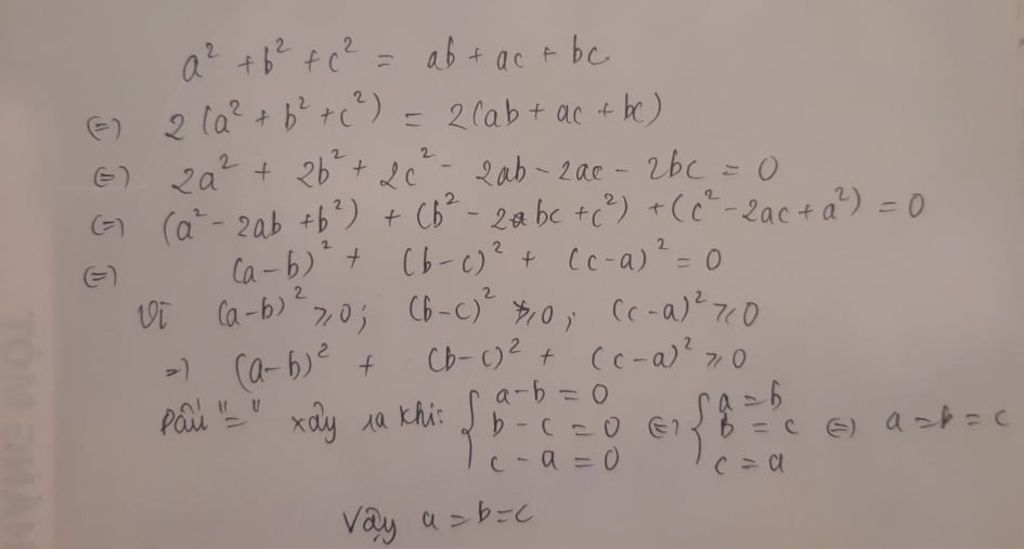 a² + b² + c² = ab + ac + bc
⇔ 2(a² + b² + c²) = 2(ab + ac + bc)
⇔ 2a² + 2b² + 2c² - 2ab - 2ac - 2bc = 0
⇔ (a² - 2ab + b²) + (b² - 2bc + c²) + (c² - 2ac + a²) = 0
⇔ (a-b)² + (b-c)² + (c-a)² = 0
Vì (a-b)² ⩾ 0; (b-c)² ⩾ 0; (c-a)² ⩾ 0
⇒ (a-b)² + (b-c)² + (c-a)² ⩾ 0
Dấu "=" xảy ra khi: { a-b = 0 ; b-c = 0 ; c-a = 0 ⇔ { a = b ; b = c ; c = a ⇔ a = b = c
Vậy a = b = c